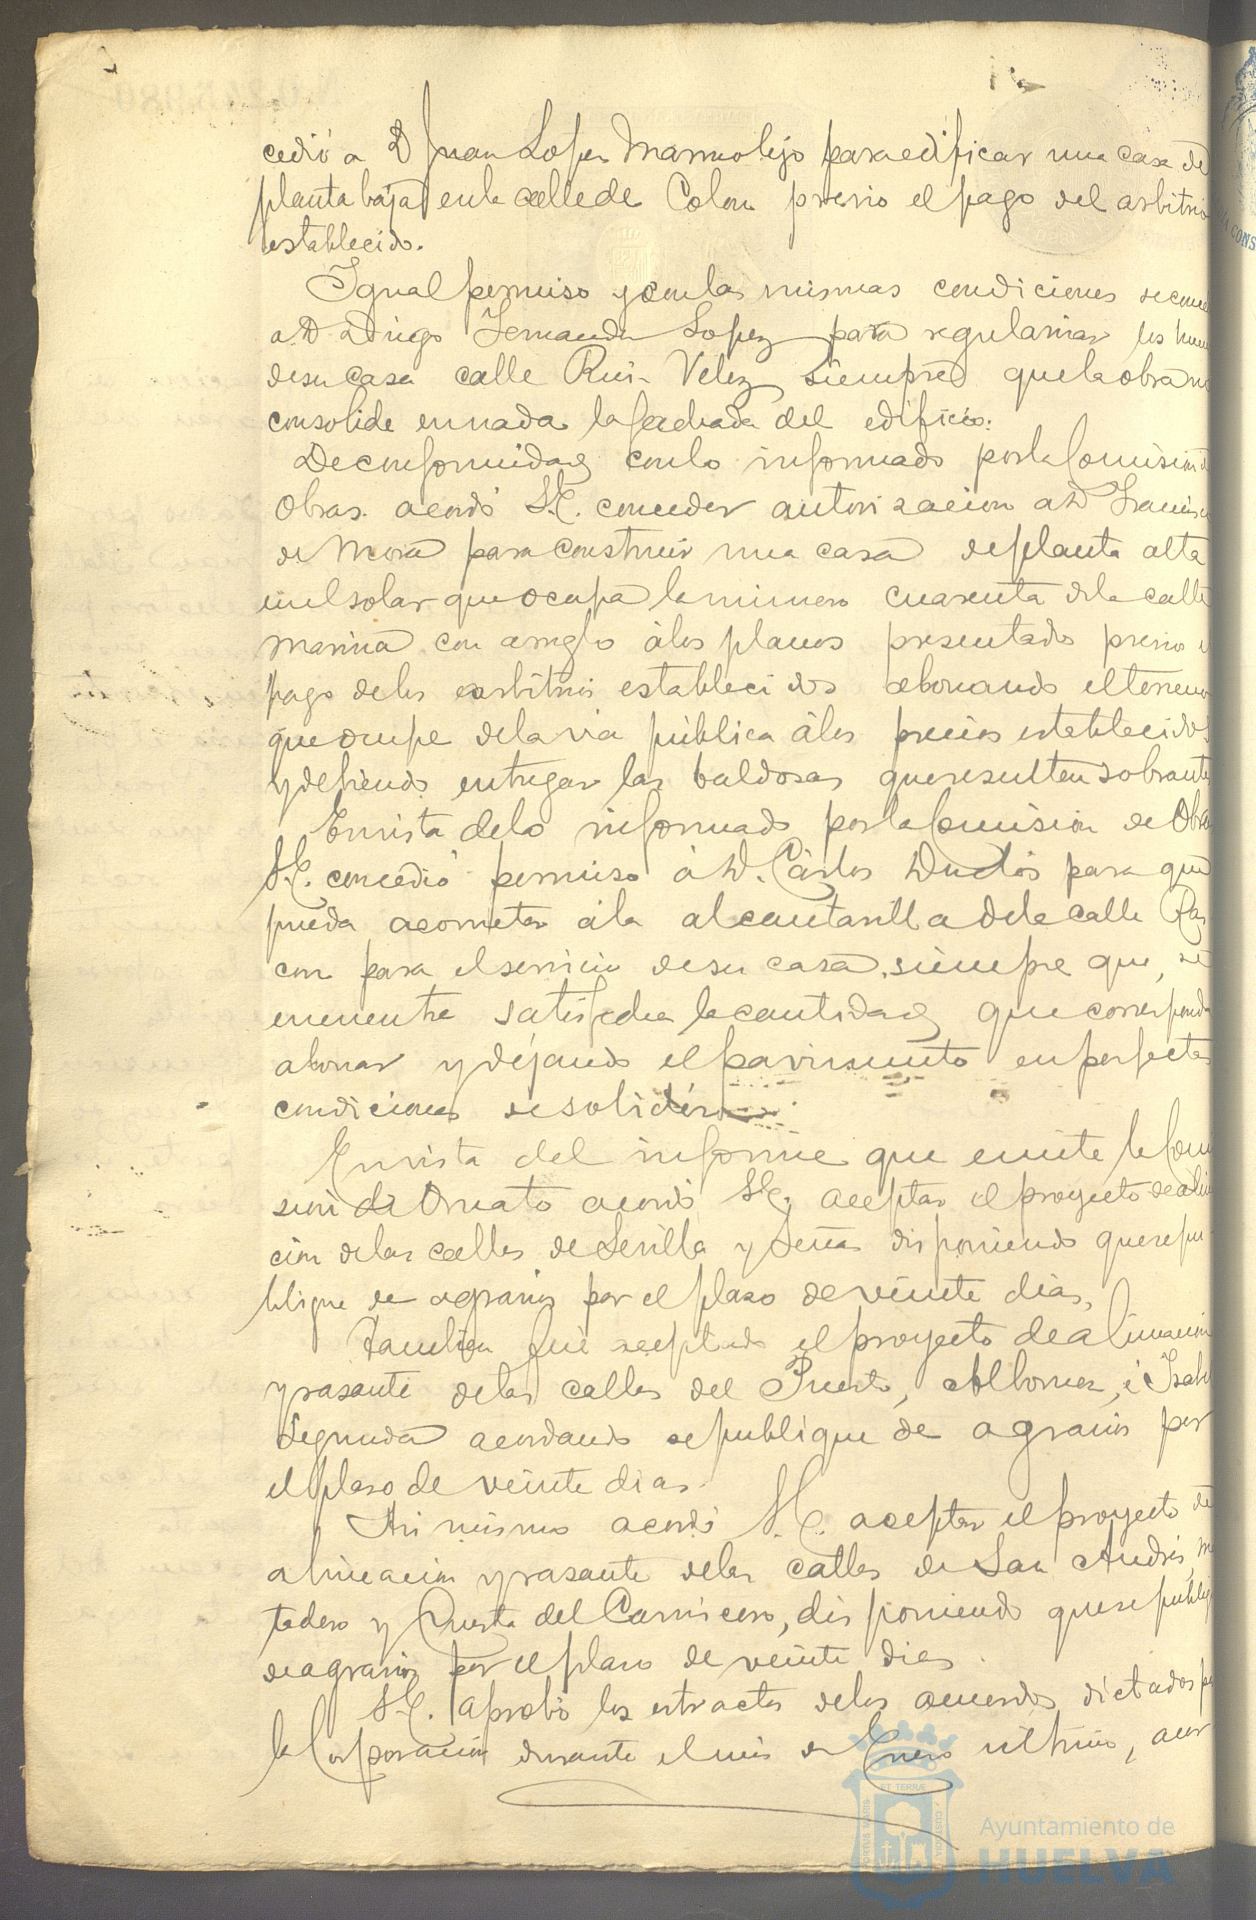 cedió a D Juan Lopez Marmolejo para edificar una casa de
planta baja en la calle de Colon previo el pago del arbitrio
establecido.
Igual permiso y con las mismas condiciones se conce
a D Diego Fernandez Lopez para regularizar los huec
de su casa calle Ruiz Velez siempre que la obra no
consolide en nada la fachada del edificio.
De conformidad con lo informado por la Comision d
Obras acordó S.E. conceder autorizacion a D Francisc
de Mora para construir una casa de planta alta
en el solar que ocupa la numero cuarenta de la calle
Marina con arreglo á los planos presentados previo el
pago de los arbitrios establecidos abonando el terreno
que ocupe de la via pública á los precios establecidos
y debiendo entregar las baldosas que resulten sobrante
En vista de lo informado por la Comision de Obra
S.E. concedió permiso á D. Cárlos Duclós para que
pueda acometer á la alcantarilla de la calle Ras
con para el servicio de su casa, siempre que, se
encuentre satisfecha la cantidad que corresponda
abonar y dejando el pavimento en perfectas
condiciones de solidéz
En vista del informe que emite la Comi
sion de Ornato acordó S.E. aceptar el proyecto de alin
cion de las calles de Sevilla y Señas disponiendo que se pu
blique de agravios por el plazo de veinte dias,
Tambien fué aceptado el proyecto de alineacion
y rasante de las calles del Puerto, Albornoz, é Isabel
Segunda acordando se publique de agravios por
el plazo de veinte dias.
Asi mismo acordó S.E. aceptar el proyecto de
alineacion y rasante de las calles de San Andrés, Ma
tadero y Cuesta del Carnicero, disponiendo que se publiq
de agravios por el plazo de veinte dias.
S.E. aprobó los extractos de los acuerdos dictados po
la Corporacion durante el mes de Enero último, acor
Ayuntamiento de
HUELVA